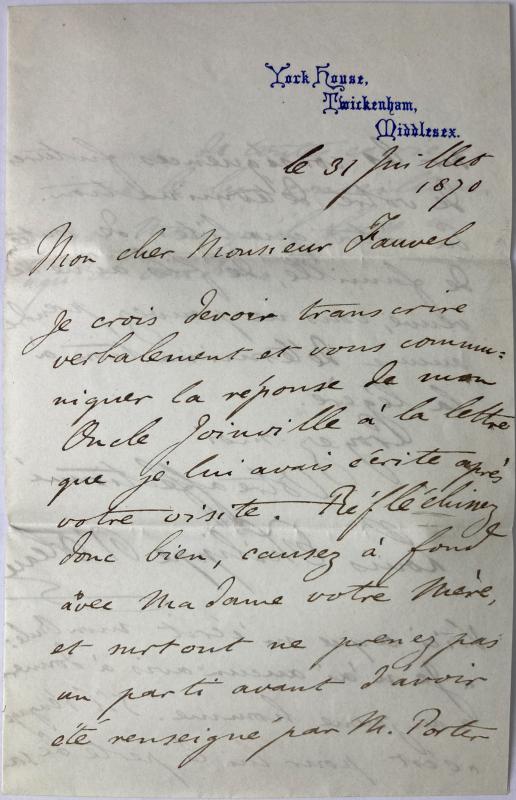 York House,
Twickenham,
Middlesex.
le 31 Juillet
1870
Mon cher Monsieur Fauvel
Je crois devoir transcrire
verbalement et vous commu-
niquer la réponse de mon
Oncle Joinville à la lettre
que je lui avais écrite après
votre visite. Réfléchissez
donc bien, causez à fond
avec Madame votre Mère,
et surtout ne prenez pas
un parti avant d'avoir
été renseigné par M. Porter